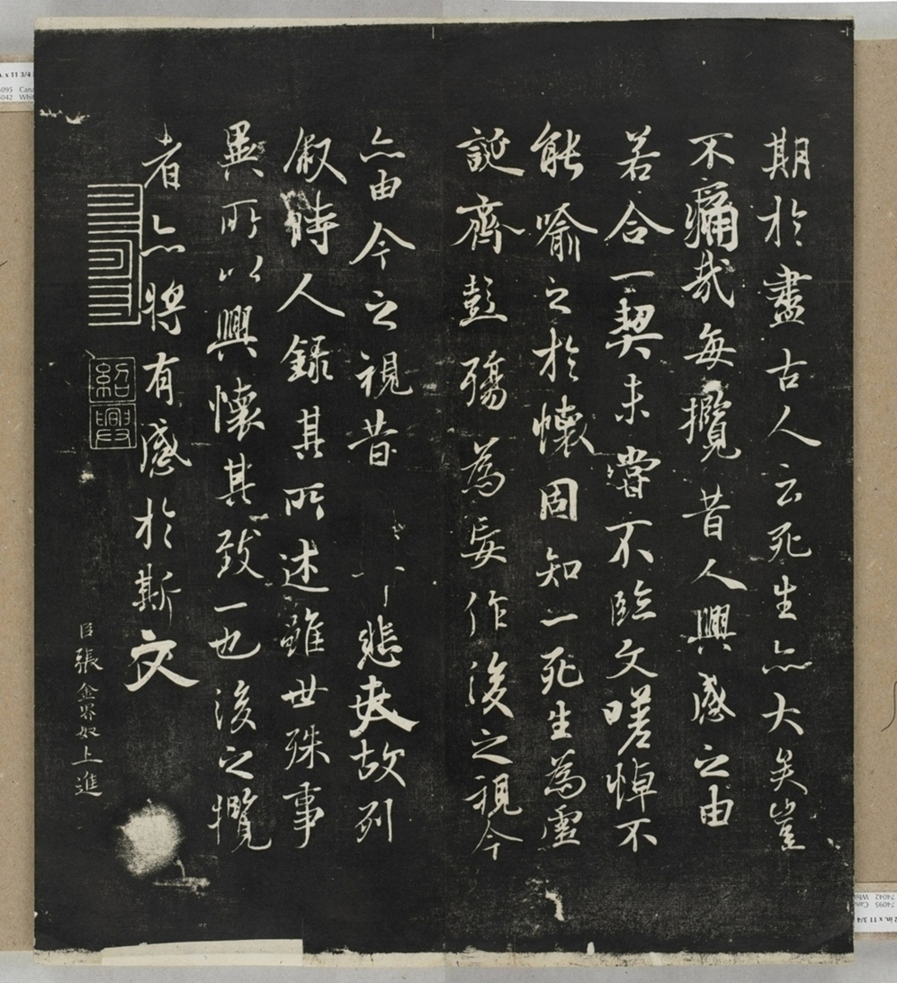 期於盡古人云死生亦大矣豈
不痛哉每攬昔人興感之由
若合一契未嘗不臨文嗟悼不
能喻之於懷固知一死生為虛
誕齊彭殤為妄作後之視今
亦由今之視昔 悲夫故列
叙時人錄其所述雖世殊事
異所以興懷其致一也後之攬
者亦將有感於斯文
臣張金界奴上進
紹興